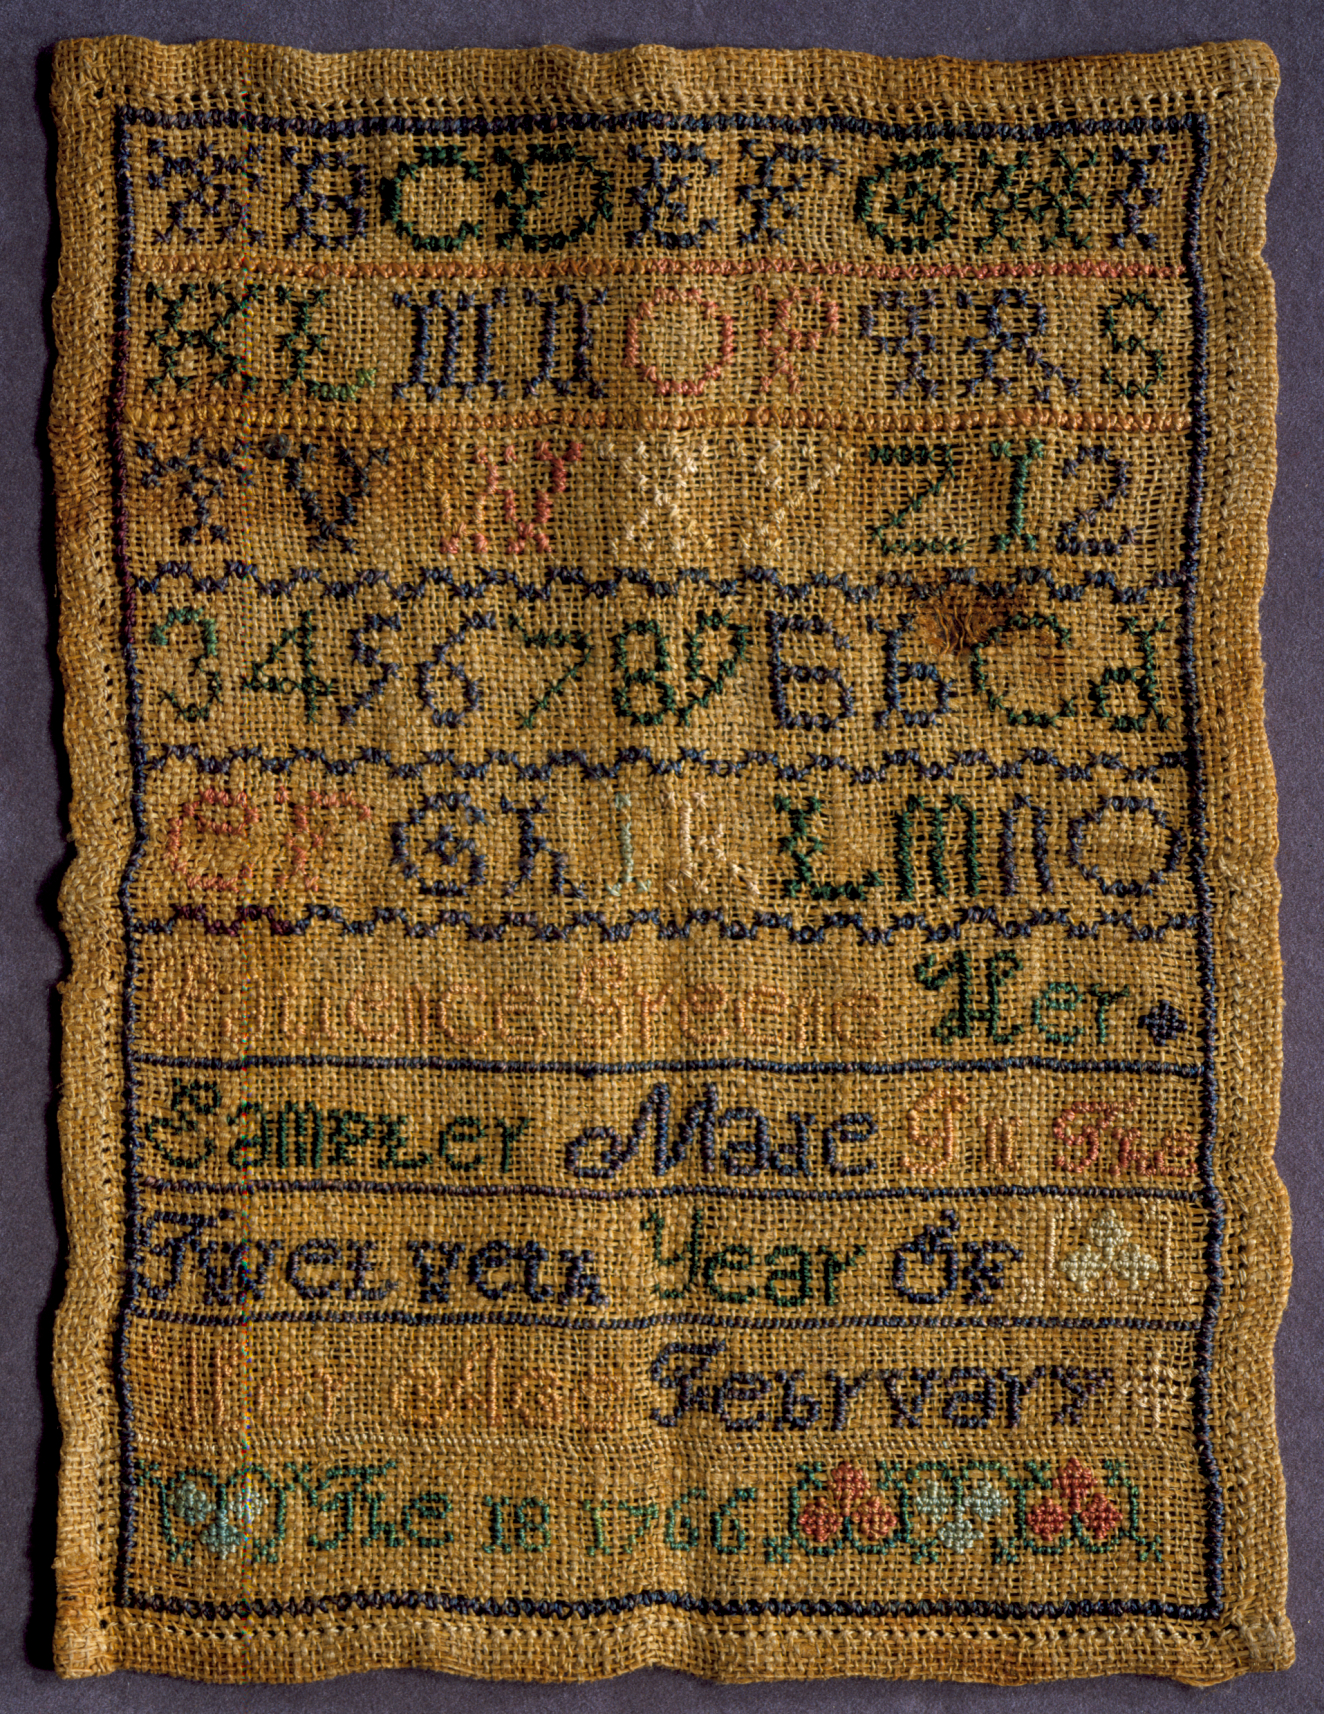 A B C D E F G H I
K L M N O P Q R S
T V W X Y Z 1 2
3 4 5 6 7 8 9 a b C d
e f G h i k L m n O
Greene Her
Sampler Made In The
Twelveth Year Of
Her Age Febrvary
The 18 1766